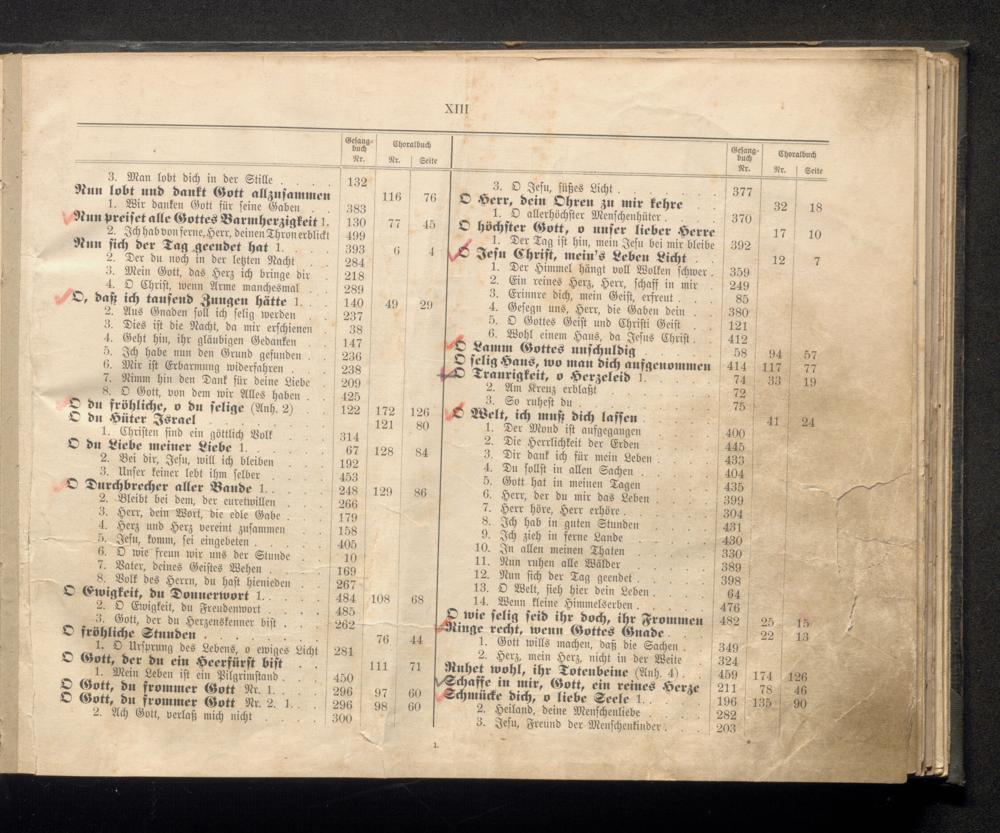 XIII
Gesang-
buch
Nr.
Choralbuch
Nr. Seite
3. Man lobt dich in der Stille . . . 132
Nun lobt und dankt Gott allzusammen 116 76
1. Wir danken Gott für seine Gaben . . 383
Nun preiset alle Gottes Barmherzigkeit 1. 130 77 45
2. Ich hab von ferne, Herr, deinen Thron erblickt 499
Nun sich der Tag geendet hat 1. . . . 393 6 4
2. Der du noch in der letzten Nacht . . 284
3. Mein Gott, das Herz ich bringe dir . . 218
4. O Christ, wenn Arme manchesmal . . 289
O, daß ich tausend Zungen hätte 1. . . 140 49 29
2. Aus Gnaden soll ich selig werden . . 237
3. Dies ist die Nacht, da mir erschienen . 38
4. Geht hin, ihr gläubigen Gedanken . . 147
5. Ich habe nun den Grund gefunden . . 236
6. Mir ist Erbarmung widerfahren . . . 238
7. Nimm hin den Dank für deine Liebe . 209
8. O Gott, von dem wir Alles haben . . 425
O du fröhliche, o du selige (Anh. 2) . . 122 172 126
O du Hüter Israel 121 80
1. Christen sind ein göttlich Volk . . . 314
O du Liebe meiner Liebe 1. . . . 67 128 84
2. Bei dir, Jesu, will ich bleiben . . . 192
3. Unser keiner lebt ihm selber . . . 453
O Durchbrecher aller Bande 1. . . . 248 129 86
2. Bleibt bei dem, der euretwillen . . . 266
3. Herr, dein Wort, die edle Gabe . . . 179
4. Herz und Herz vereint zusammen . . 158
5. Jesu, komm, sei eingebeten . . . . 405
6. O wie freun wir uns der Stunde . . 10
7. Vater, deines Geistes Wehen . . . 169
8. Volk des Herrn, du hast hienieden . . 267
O Ewigkeit, du Donnerwort 1. . . . 484 108 68
2. O Ewigkeit, du Freudenwort . . . 485
3. Gott, der du Herzenskenner bist . . . 262
O fröhliche Stunden . . . . 76 44
1. O Ursprung des Lebens, o ewiges Licht 281
O Gott, der du ein Heerfürst bist . . 111 71
1. Mein Leben ist ein Pilgrimstand . . . 450
O Gott, du frommer Gott Nr. 1. . . . 296 97 60
O Gott, du frommer Gott Nr. 2. 1. . . 296 98 60
2. Ach Gott, verlaß mich nicht . . . 300
Gesang-
buch
Nr.
Choralbuch
Nr. Seite
3. O Jesu, süßes Licht . . . . 377
O Herr, dein Ohren zu mir kehre . . 32 18
1. O allerhöchster Menschenhüter . . . 370
O höchster Gott, o unser lieber Herre 17 10
1. Der Tag ist hin, mein Jesu bei mir bleibe 392
O Jesu Christ, mein's Leben Licht . . 12 7
1. Der Himmel hängt voll Wolken schwer . 359
2. Ein reines Herz, Herr, schaff in mir . 249
3. Erinnre dich, mein Geist, erfreut . . 85
4. Gesegn uns, Herr, die Gaben dein . . 380
5. O Gottes Geist und Christi Geist . . 121
6. Wohl einem Haus, da Jesus Christ . . 412
O Lamm Gottes unschuldig . . . . 58 94 57
O selig Haus, wo man dich aufgenommen 414 117 77
O Traurigkeit, o Herzeleid 1. . . . 74 33 19
2. Am Kreuz erblaßt . . . . 72
3. So ruhest du . . . . 75
O Welt, ich muß dich lassen . . . . 41 24
1. Der Mond ist aufgegangen . . . . 400
2. Die Herrlichkeit der Erden . . . . 445
3. Dir dank ich für mein Leben . . . 433
4. Du sollst in allen Sachen . . . . 404
5. Gott hat in meinen Tagen . . . . 435
6. Herr, der du mir das Leben . . . . 399
7. Herr höre, Herr erhöre . . . . 304
8. Ich hab in guten Stunden . . . . 431
9. Ich zieh in ferne Lande . . . . 430
10. In allen meinen Thaten . . . . 330
11. Nun ruhen alle Wälder . . . . 389
12. Nun sich der Tag geendet . . . . 398
13. O Welt, sieh hier dein Leben . . . 64
14. Wenn kleine Himmelserben . . . . 476
O wie selig seid ihr doch, ihr Frommen 482 25 15
Ringe recht, wenn Gottes Gnade . . 22 13
1. Gott wills machen, daß die Sachen . . 349
2. Herz, mein Herz, nicht in der Weite . 324
Ruhet wohl, ihr Totenbeine (Anh. 4) . . 459 174 126
Schaffe in mir, Gott, ein reines Herze 211 78 46
Schmücke dich, o liebe Seele 1. . . . 196 135 90
2. Heiland, deine Menschenliebe . . . 282
3. Jesu, Freund der Menschenkinder . . . 203
1.